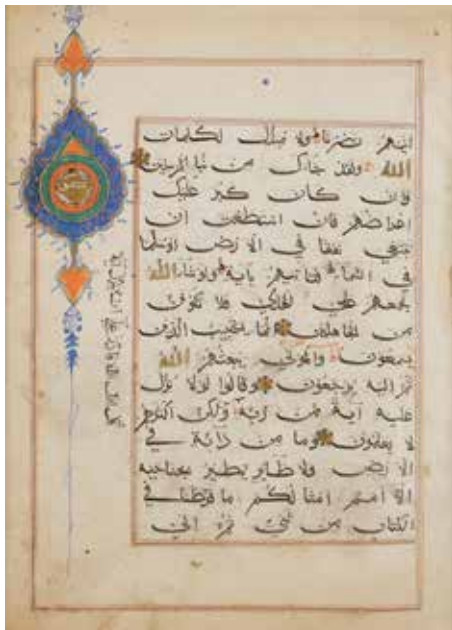 اتيهم نصرنا ولا مبدل لكلمات
الله ولقد جاك من نبا المرسلين
وان كان كبر عليك
اعراضهم فان استطعت ان
تبتغي نفقا في الارض او سلما
في السما فتاتيهم باية ولو شا الله
لجمعهم على الهدي فلا تكونن
من الجاهلين انما يستجيب الذين
يسمعون والموتي يبعثهم الله
ثم اليه يرجعون وقالوا لولا نزل
عليه اية من ربه ولكن اكثرهم
لا يعلمون وما من دابة في
الارض ولا طاير يطير بجناحيه
الا امم امثالكم ما فرطنا في
الكتاب من شي ثم الي
قل ان الله قادر علي ان ينزل اية